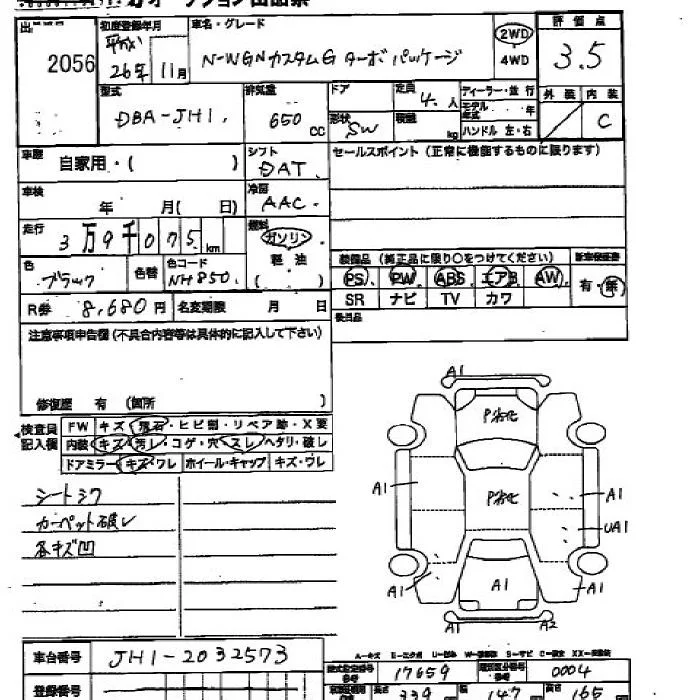 出 2056
初度登録年月 平成 26年 11月
車名・グレード N-WGNカスタムG ターボ パッケージ
2WD 4WD
評価点 3.5
型式 DBA-JH1
排気量 650 CC
ドア
形状 SW
定員 4人
積載 kg
ディーラー・並行
モデル年式 年
ハンドル 左・右
外装 内装 C
車歴 自家用・( )
シフト DAT
セールスポイント (正常に機能するものに限ります)
車検 年 月( 日)
冷房 AAC
走行 3万9千075km
燃料 ガソリン 軽油
色 ブラック 色替 色コード NH850
装備品 (純正品に限り○をつけてください)
PS PW ABS エアB AW 有・無
SR ナビ TV カワ
R券 8,680円 名変期限 月 日
後日品
注意事項申告欄(不具合内容等は具体的に記入して下さい)
修復歴 有 (箇所 )
検査員記入欄
FW キズ・飛石・ヒビ割・リペア跡・X要
内装 キズ・汚レ・コゲ・穴・スレ・ヘタリ・破レ
ドアミラー キズ・ワレ ホイール・キャップ キズ・ワレ
シートシワ
カーペット破レ
各キズ凹
A1
A1
A1
UA1
A1
A1
A1
A1
A2
車台番号 JH1-2032573
登録番号
A-キズ
17659
0004
長さ 339 幅 147 高さ 165